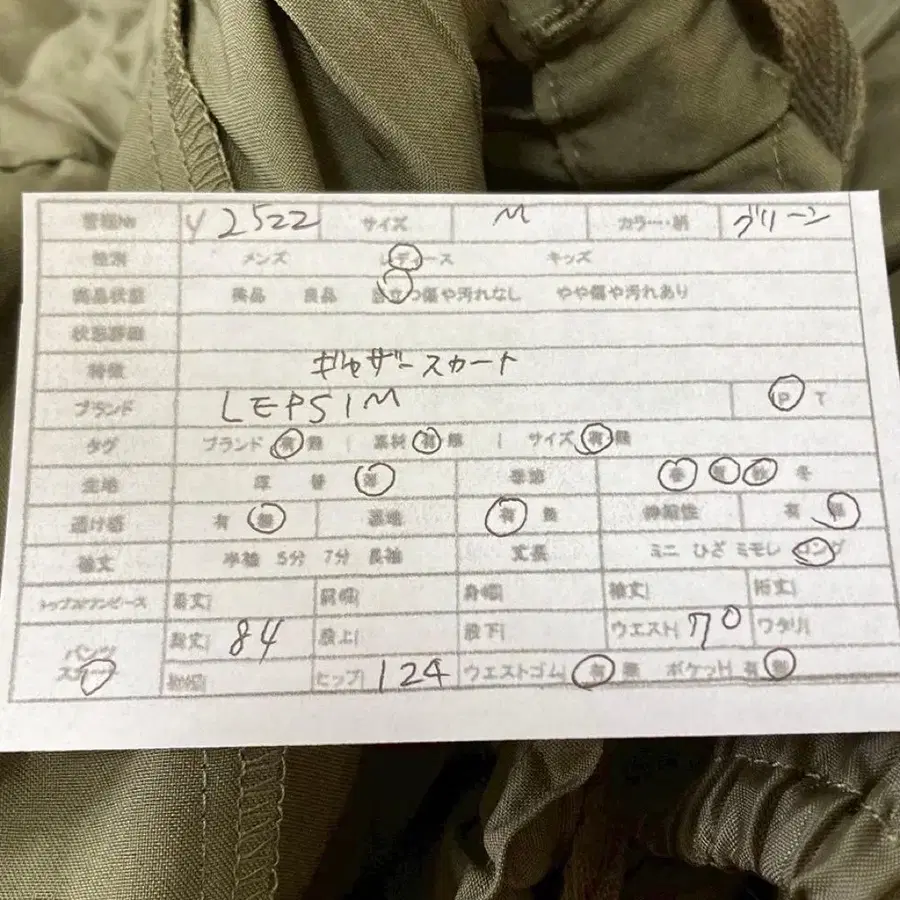 管理No y2522 サイズ M カラー・柄 グリーン
性別 メンズ レディース キッズ
商品状態 美品 良品 目立つ傷や汚れなし やや傷や汚れあり
状態詳細
特徴 ギャザースカート
ブランド LEPSIM P T
タグ ブランド 有 無 | 素材 有 無 | サイズ 有 無
生地 厚 普 薄 季節 春 夏 秋 冬
透け感 有 無 裏地 有 無 伸縮性 有 無
袖丈 半袖 5分 7分 長袖 丈長 ミニ ひざ ミモレ ロング
トップス/ワンピース 着丈| 肩幅| 身幅| 袖丈| 裄丈|
パンツ 総丈| 84 股上| 股下| ウエスト| 70 ワタリ|
スカート 裾幅| ヒップ| 124 ウエストゴム| 有 無 ポケット| 有 無